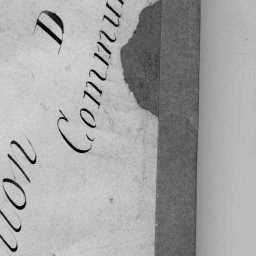 D
Commun
ion